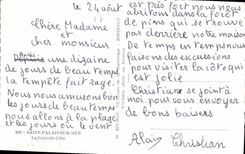 le 24 août
Chère Madame
et
cher monsieur
une dizaine
de jours de beau temps
la tempête fait rage.
Nous nous amusons bien
les jours de beau temps
nous allons à la plage
et les jours où le vent
SAINT-PALAIS-SUR-MER
La Grande Côte
est très fort nous nous
abritons dans la forêt
de pins qui se trouve
pas derrière notre maison
De temps en temps nous
faisons des excursions
pour visiter la côte qui
est jolie
Christiane se joint à
moi pour vous envoyer
de bons baisers
Alain Christian